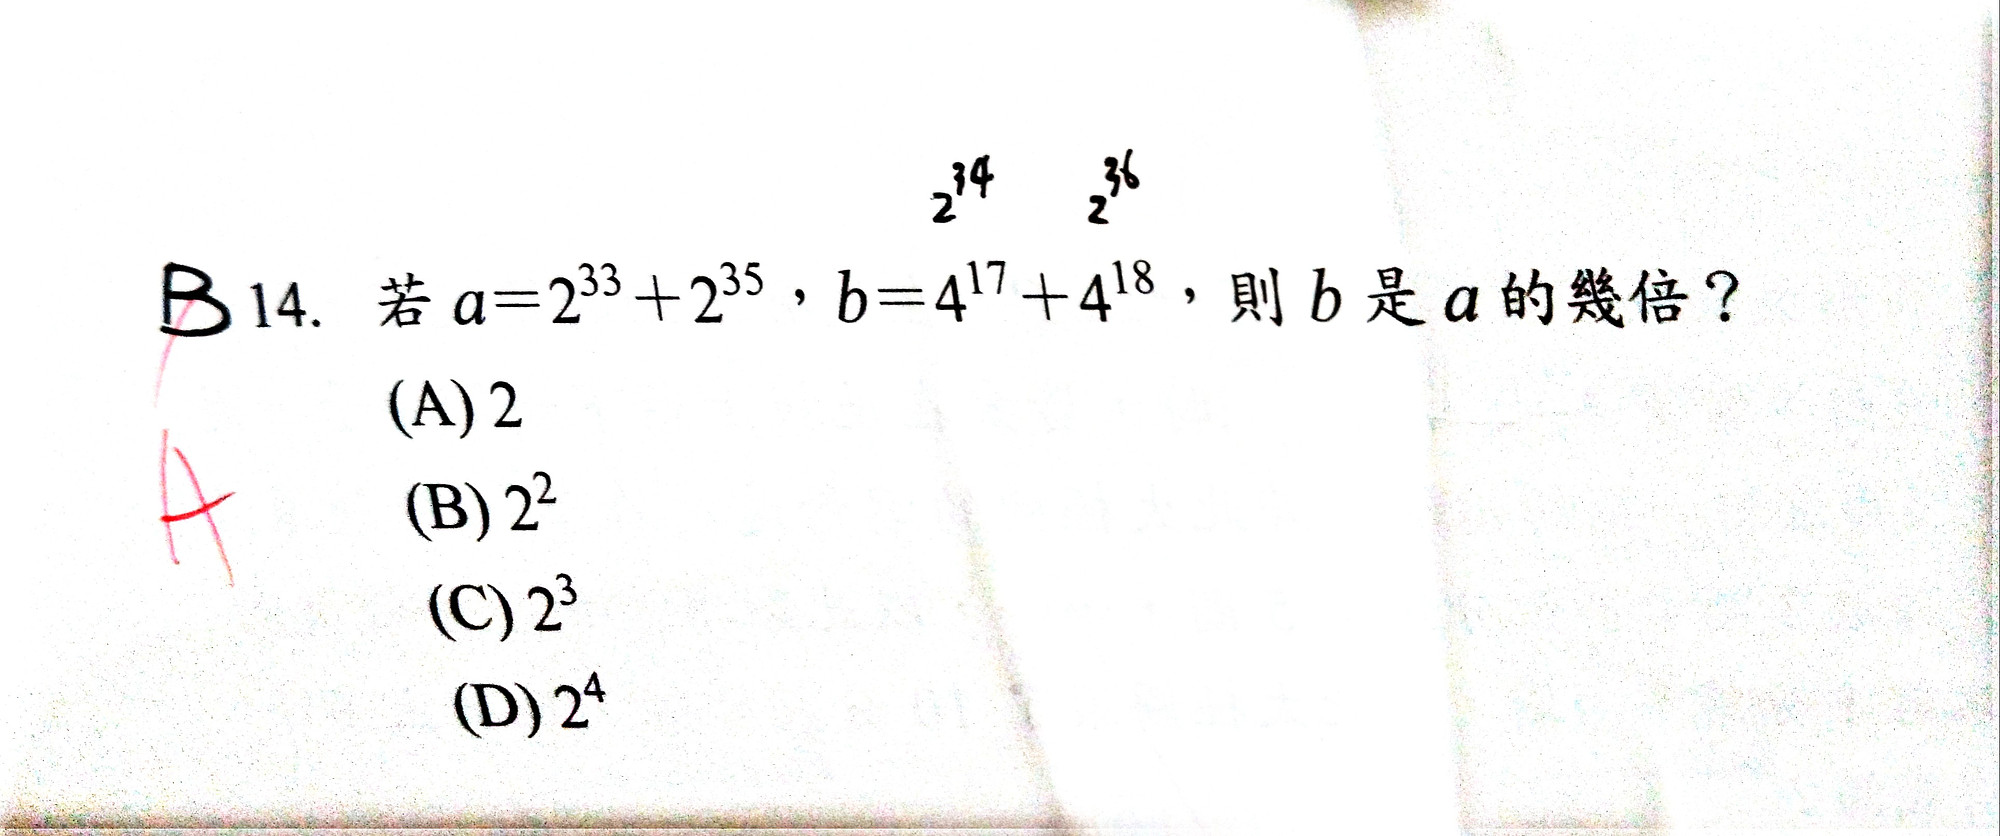 2^34 2^36
B 14. 若 a=2^33+2^35，b=4^17+4^18，則 b 是 a 的幾倍？
(A) 2
A
(B) 2^2
(C) 2^3
(D) 2^4